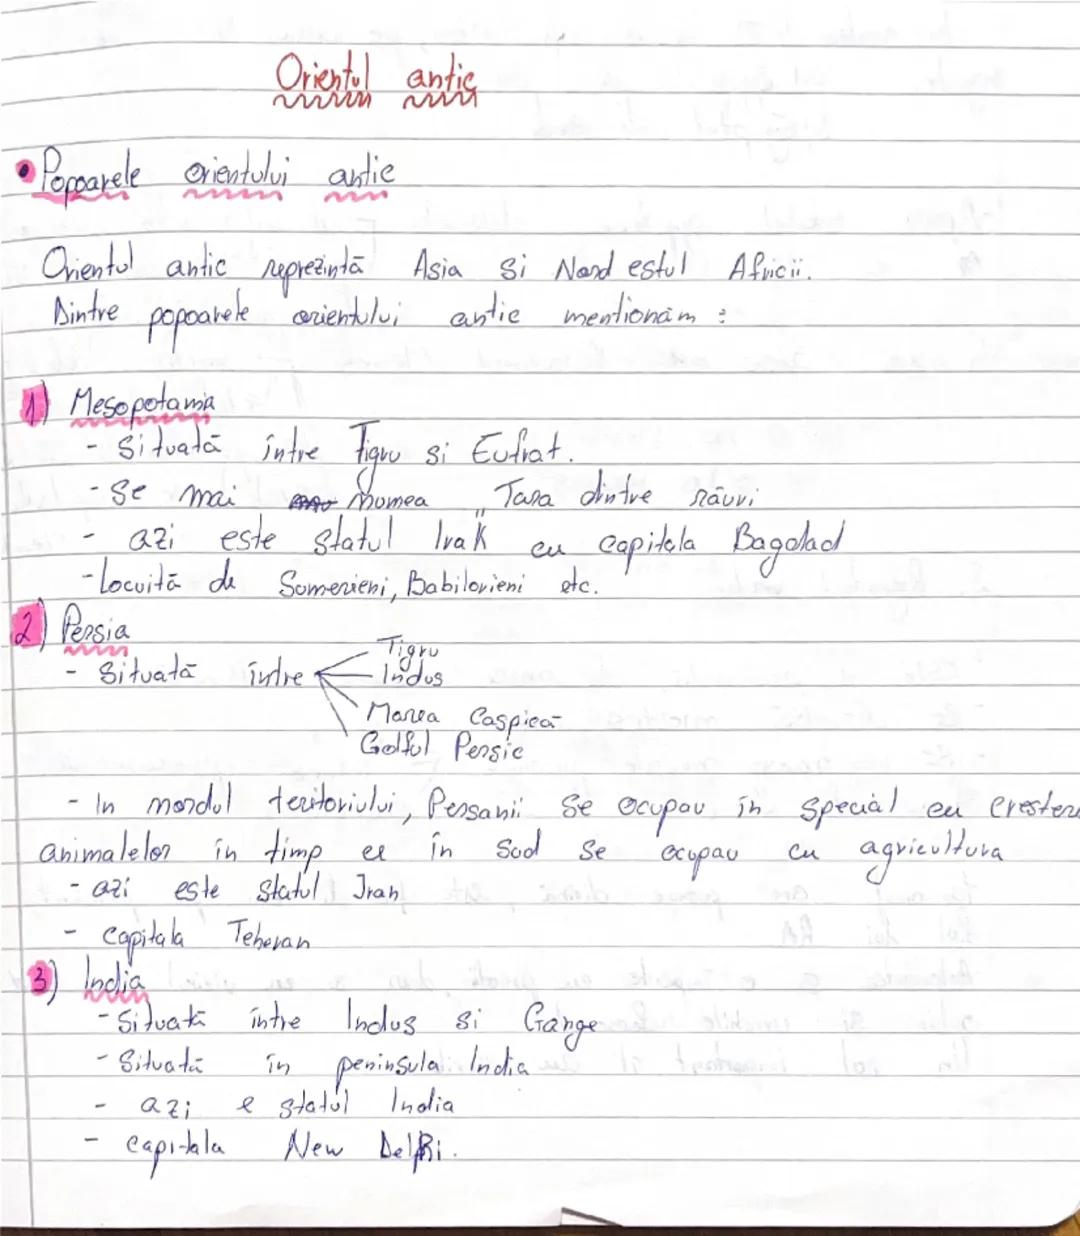 Orientul antic
• Popoarele orientului antic
Orientul antic reprezintă Asia si Nord estul Africii.
Dintre popoarele orientului antic mentionăm :
1) Mesopotamia
- Situată între Tigru si Eufrat.
- Se mai numea „Tara dintre râuri
- azi este statul Irak cu capitala Bagdad
- Locuită de Sumerieni, Babilonieni etc.
2) Persia
- Situată între Tigru
Indus
Marea Caspică
Golful Persic
- In nordul teritoriului, Persanii se ocupau în special cu crestere
animalelor în timp ce în Sud se ocupau cu agricultura
- azi este statul Iran
- capitala Teheran
3) India
- Situată între Indus si Gange
- Situată în peninsula India
- azi e statul India
- capitala New Delhi.